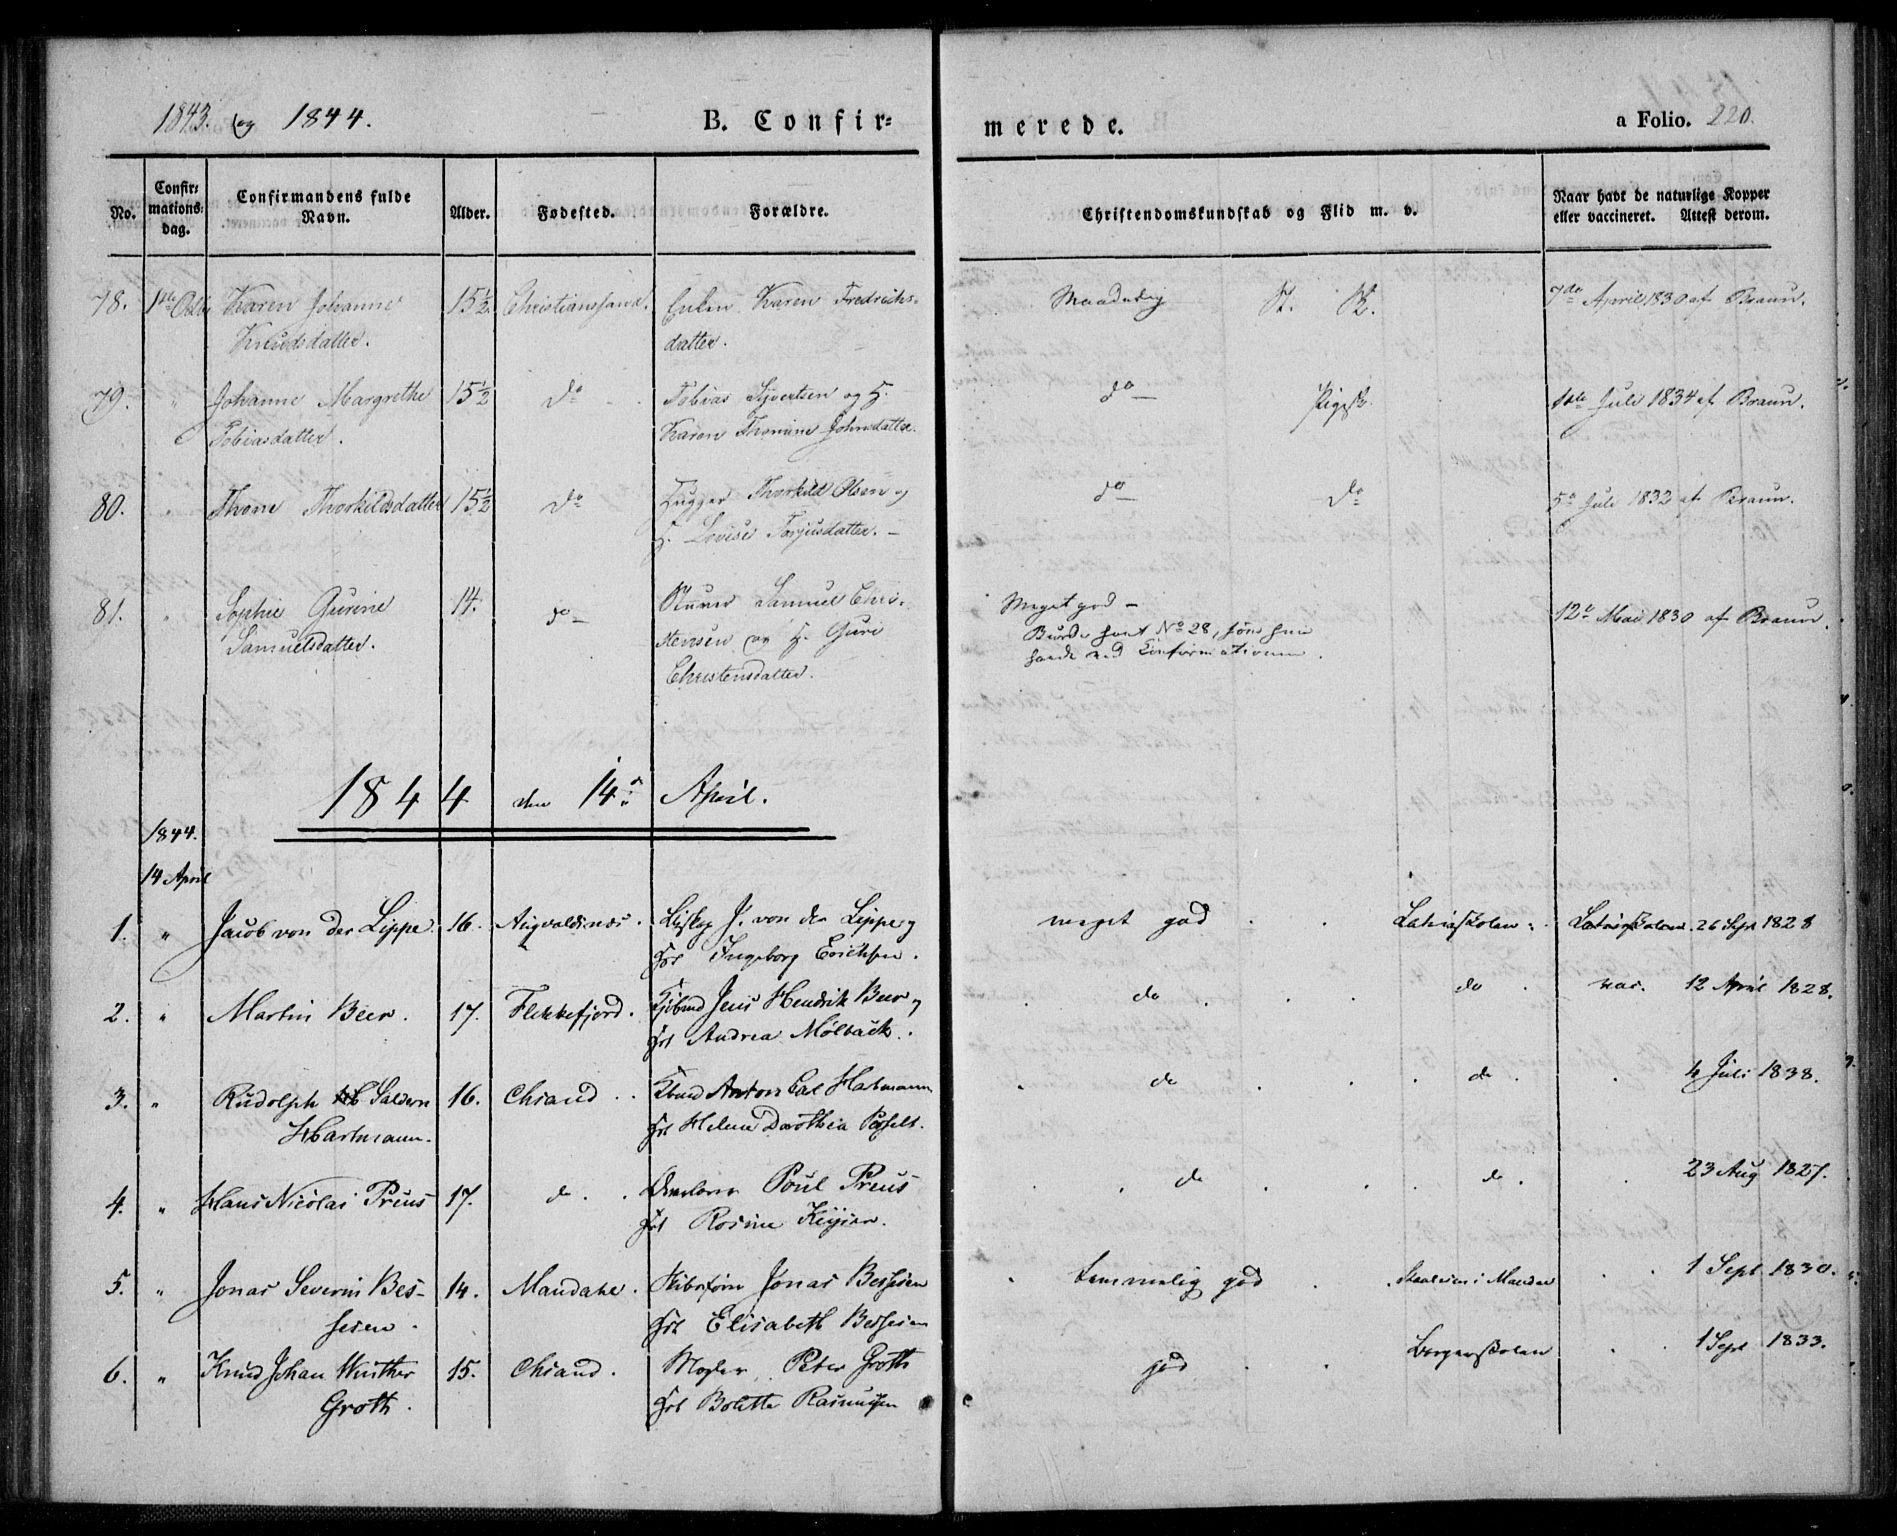 1843. og 1844.
B. Confir=
merede.
a Folio. 220.
No.
Confir=
mations=
dag.
Confirmandens fulde
Navn.
Alder.
Fødested.
Forældre.
Christendomskundskab og Flid m. v.
Naar havt de naturlige Kopper
eller vaccineret. Attest derom.
78. 1ste Karen Johanne 15½. Christianssand. Enken Karen Fredrichs- Maadelig St. 7de April 1830 af Braun.
Knudsdatter. datter.
79. " Johanne Margrethe 15½ do Tobias Syvertsen og H. do Pigesk. 1ste Juli 1834 af Braun.
Tobiasdatter. Karen Thomine Johnsdatter.
80. " Thone Thorkildsdatter 15½ do Thorkild Olsen og do do 5e Juli 1832 af Braun.
H. Lovise Torjusdatter.
81. " Sophie Gurine 14. do Stuver Samuel Chris- Meget god - 12e Mai 1830 af Braun.
Samuelsdatter. stensen og H. Guri Burde havt No 28,
Christensdatter. ved Confirmationen.
1844 den 14de April.
1844.
14 April
1. " Jacob von der Lippe 16. Augvaldsnes. Biskop J. von der Lippe og meget god Latinskolen Latinskolen. 26 Sept 1828
Ingeborg Erichsen.
2. " Martin Beer. 17. Flekkefjord. Kjøbmd Jens Hendrik Beer og do do vac. 12 April 1828.
Andrea Mølbach.
3. " Rudolph Saldern 16. Chrsand. Kbmd Anton Carl Hartmann do do 4 Juli 1838.
Hartmann. Helene Dorothea Posselt.
4. " Hans Nicolai Preus 17. do Poul Preus do do 23 Aug 1827.
Rosine Keyser.
5. " Jonas Severin Bes- 14. Mandahl. Jonas Bessesen temmelig god Skolen i Mandal 1 Sept 1830.
sesen. Elisabeth Bessesen
6. " Knud Johan Winther 15. Chrsand. Mægler Peter Groth god Borgerskolen 1 Sept 1833.
Groth. Bolette Rasmussen